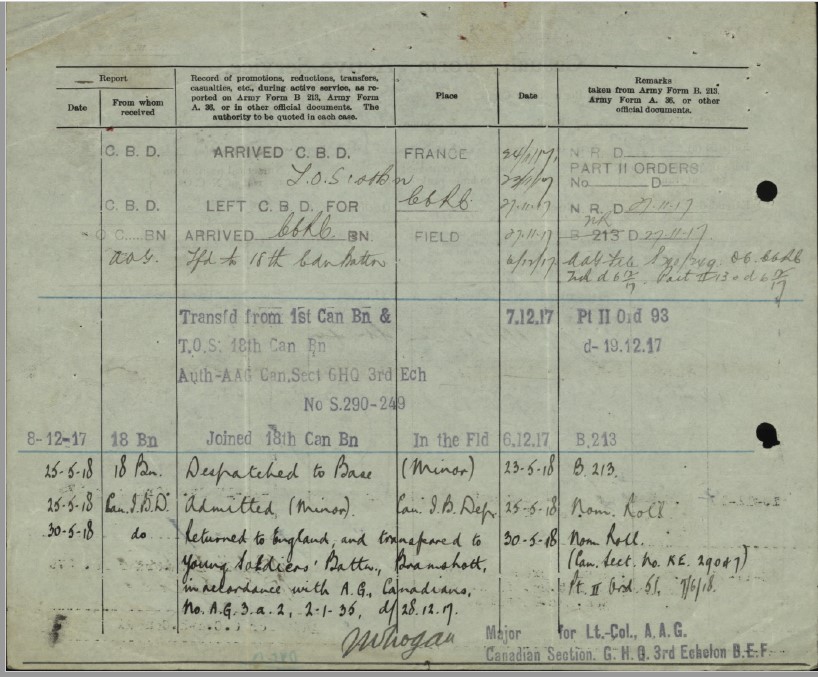 Report
Date
From whom received
Record of promotions, reductions, transfers,
casualties, etc., during active service, as re-
ported on Army Form B 213, Army Form
A. 36, or in other official documents. The
authority to be quoted in each case.
Place
Date
Remarks
taken from Army Form B. 213,
Army Form A. 36, or other
official documents.
C. B. D. ARRIVED C. B. D. FRANCE N R D
T.O.S PART II ORDERS
No D
C. B. D. LEFT C. B. D. FOR CCRC 27-11-17 N R D 27-11-17
O C BN ARRIVED CCRC BN. FIELD 27-11-17 B 213 D 27-11-17
AAG. Tfd to 18th Cdn Battn 6/12/17
Transfd from 1st Can Bn & 7.12.17 Pt II Ord 93
T.O.S. 18th Can Bn d- 19.12.17
Auth-AAG Can.Sect GHQ 3rd Ech
No S.290-249
8-12-17 18 Bn Joined 18th Can Bn In the Fld 6.12.17 B.213
25-5-18 18 Bn. Despatched to Base (Minor) 23-5-18 B. 213.
25-5-18 Can. I.B.D. Admitted, (Minor). Can. I.B. Depr 25-5-18 Nom. Roll
30-5-18 do Returned to England, and transferred to 30-5-18 Nom Roll.
Young Soldiers' Battn., Bramshott, (Can. Sect. No. KE. 29047)
in accordance with A.G., Canadians, Pt. II Ord. 51, 7/6/18.
No. A.G. 3.a.2, 2-1-35, d/ 28.12.17.
Major for Lt.-Col., A. A. G.
Canadian Section. G. H. Q. 3rd Echelon B.E.F.